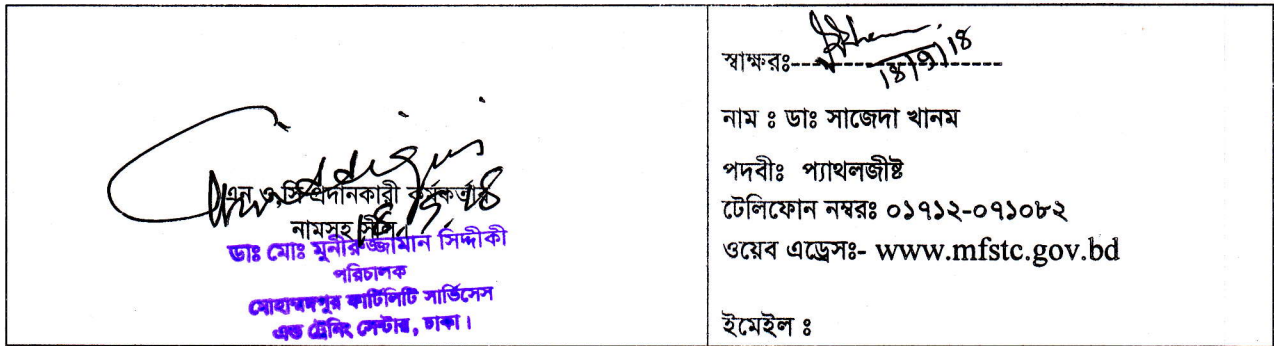 এন ও সি প্রদানকারী কর্মকর্তার
নামসহ সীল।
18.9.18
ডাঃ মোঃ মুনীরুজ্জামান সিদ্দীকী
পরিচালক
মোহাম্মদপুর ফার্টিলিটি সার্ভিসেস
এন্ড ট্রেনিং সেন্টার, ঢাকা।
স্বাক্ষরঃ--------------------
18/9/18
নাম ঃ ডাঃ সাজেদা খানম
পদবীঃ প্যাথলজীষ্ট
টেলিফোন নম্বরঃ ০১৭১২-০৭১০৮২
ওয়েব এড্রেসঃ- www.mfstc.gov.bd
ইমেইল ঃ